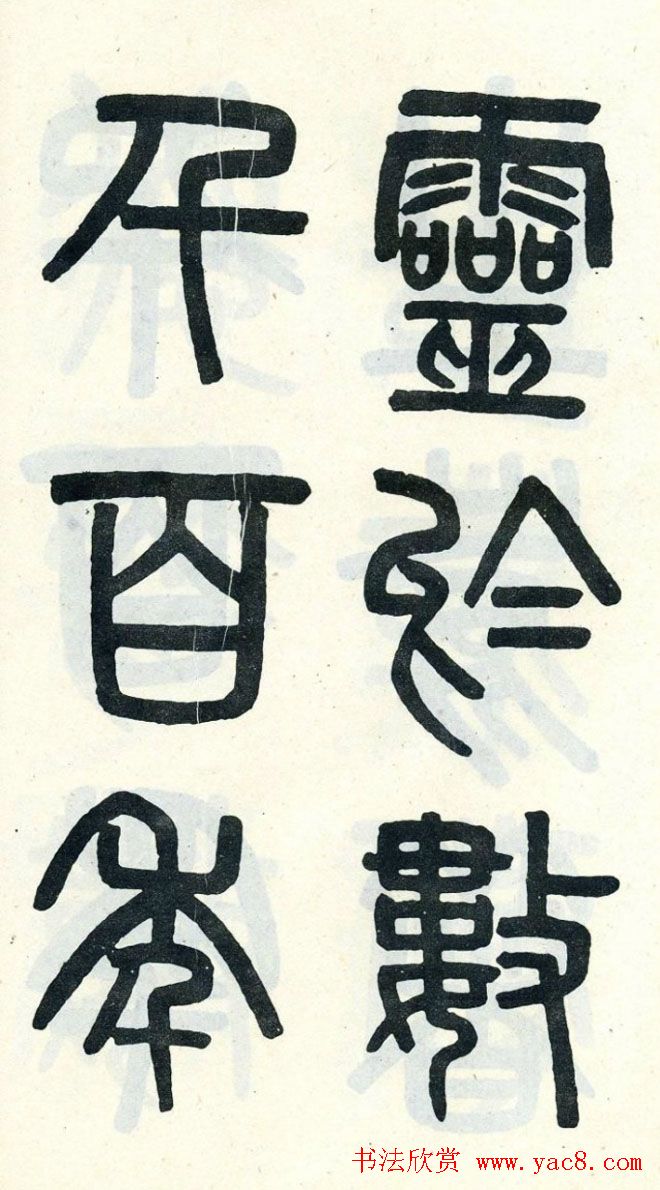 靈於數
千百年
书法欣赏 www.yac8.com